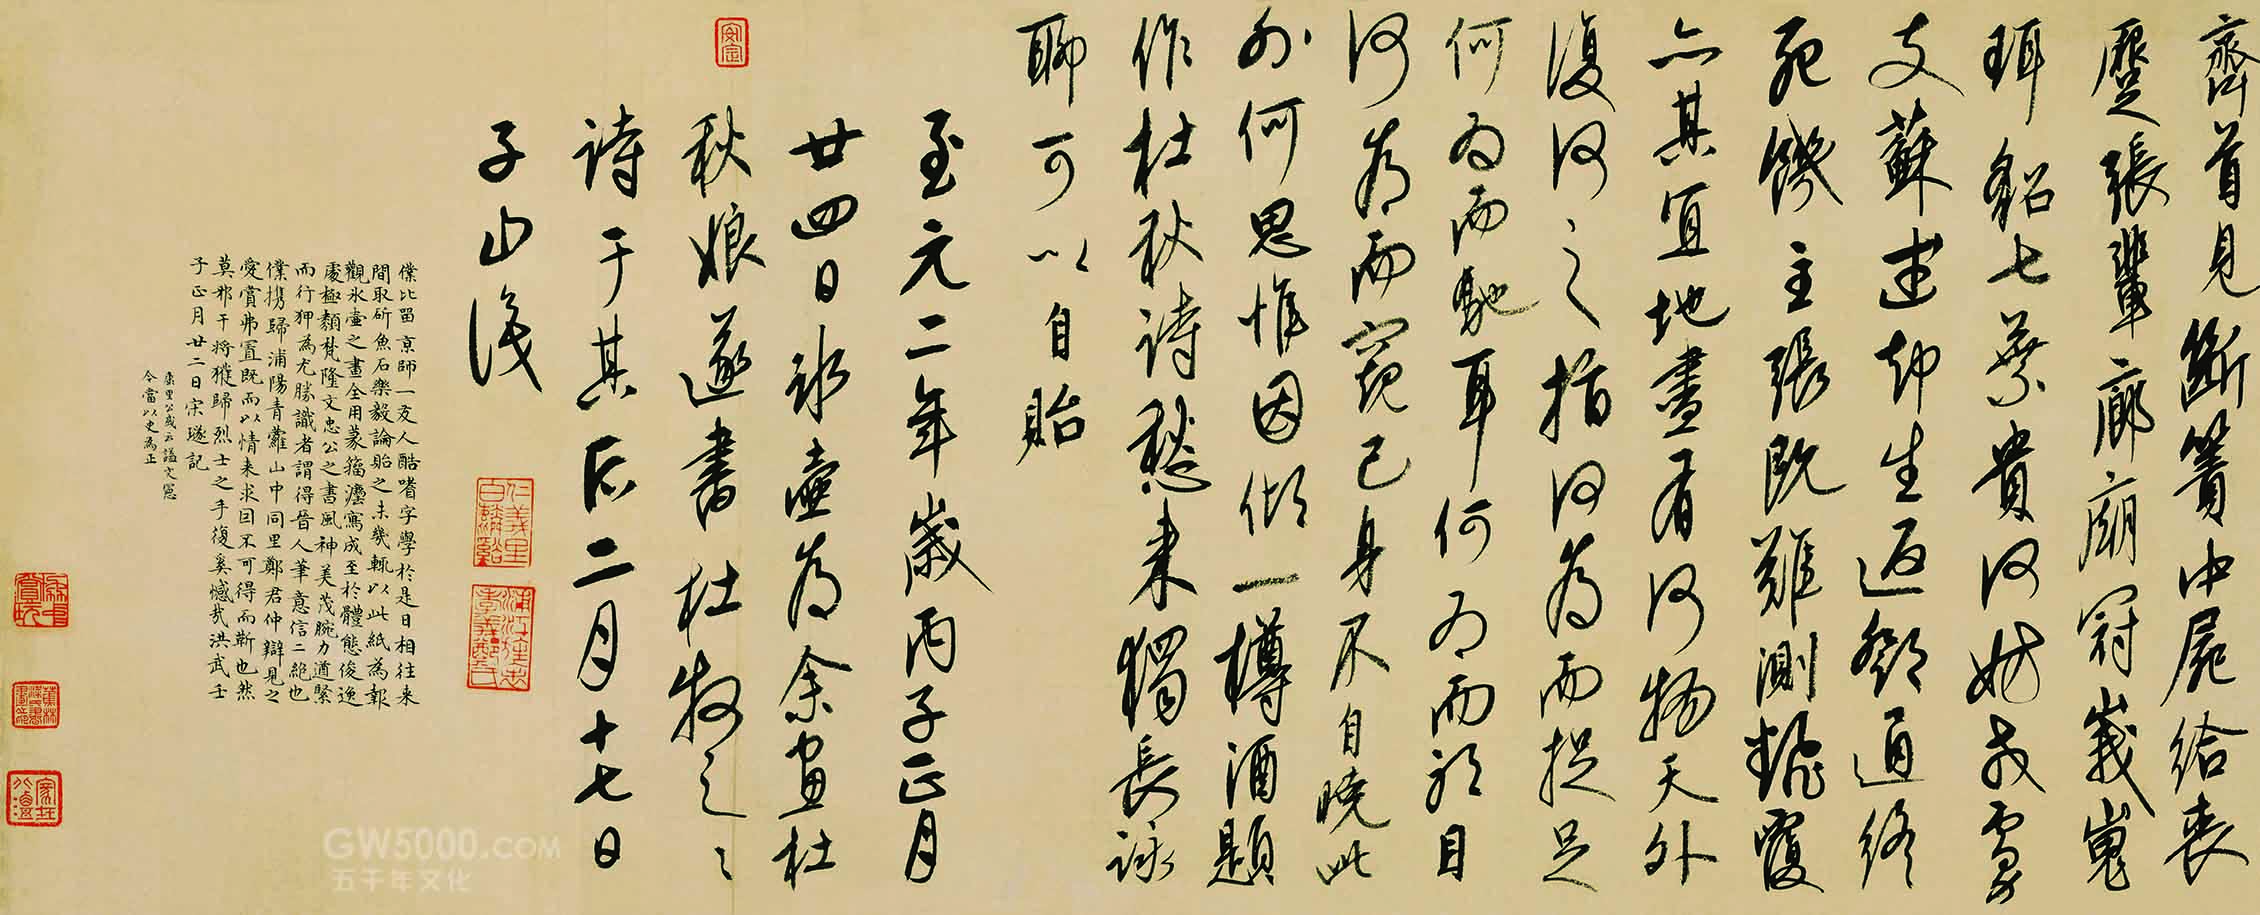 齊首見斷簀中屍給喪
蹷張輩廊廟冠峩嵬
珥貂七葉貴何妨戎虜
支蘇武却生返鄧通終
死饑主張既難測翻覆
亦其宜地盡有何物天外
復何之指何為而捉足
何為而馳耳何為而聽目
何為而窺己身不自曉此
外何思惟因傾一樽酒題
作杜秋詩愁来獨長詠
聊可以自貽
至元二年歲丙子正月
廿四日冰壺為余畫杜
秋娘遂書杜牧之之
詩于其后二月十七日
子山識
安定
仁義里
白麟谿
僕比留京師一友人酷嗜字學於是日相往来
間取斫魚石樂毅論貽之未幾輒以此紙為報
觀氷壺之畫全用篆籀灋寫成至於體態俊逸
處極類梵隆文忠公之書風神美茂腕力遒緊
而行狎為尤勝識者謂得晉人筆意信二絶也
僕携歸浦陽青蘿山中同里鄭君仲辯見之
愛賞弗置既而以情来求因不可得而靳也然
莫邪干将獲歸烈士之手復奚憾哉洪武壬
子正月廿二日宋璲記
康里公或云謚文
今當以史為正
GW5000.COM
五千年文化